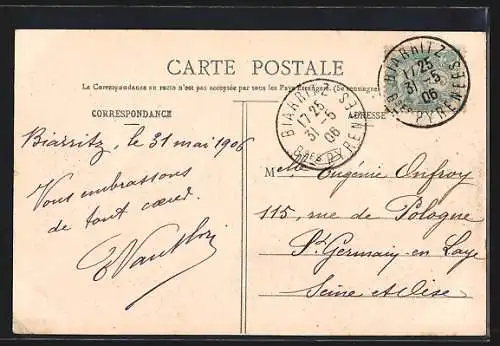 CARTE POSTALE
La Correspondance au recto n'est pas acceptée par tous les Pays Étrangers. (Se renseigner
CORRESPONDANCE
ADRESSE
BIARRITZ
17 25
31 -5
06
BSES PYRENEES
BIARRITZ
17 25
31 -5
06
BSES PYRENEES
Biarritz, le 31 mai 1906
Vous embrassons
de tout cœur.
Melle Eugénie Onfroy
115, rue de Pologne
St Germain-en-Laye
Seine et Oise